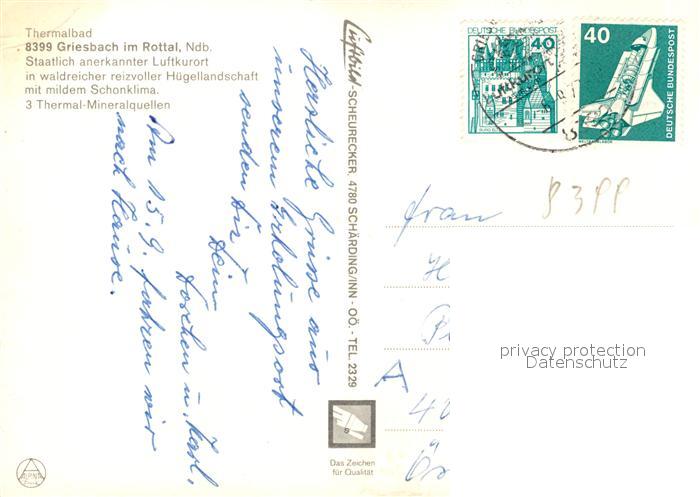 Thermalbad
8399 Griesbach im Rottal, Ndb.
Staatlich anerkannter Luftkurort
in waldreicher reizvoller Hügellandschaft
mit mildem Schonklima.
3 Thermal-Mineralquellen
Herzliche Grüsse aus
unserem Erholungsort
senden Dir
Dein
Doschen u. Karl.
Am 15.9. fahren wir
nach Hause.
Luftbild-SCHEURECKER, 4780 SCHÄRDING/INN - OÖ. - TEL. 2329
DEUTSCHE BUNDESPOST
40
40
DEUTSCHE BUNDESPOST
8399
Frau
H
A
40
Ös
privacy protection
Datenschutz
Das Zeichen
für Qualität